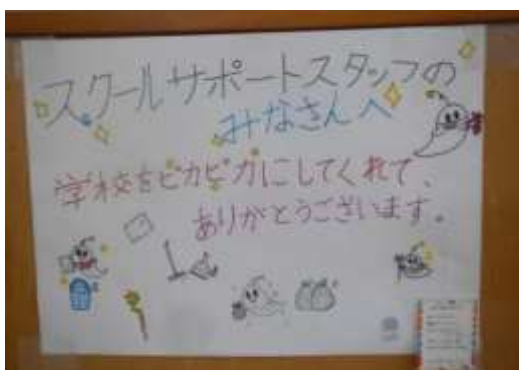 スクールサポートスタッフの
みなさんへ
学校をピカピカにしてくれて、
ありがとうございます。